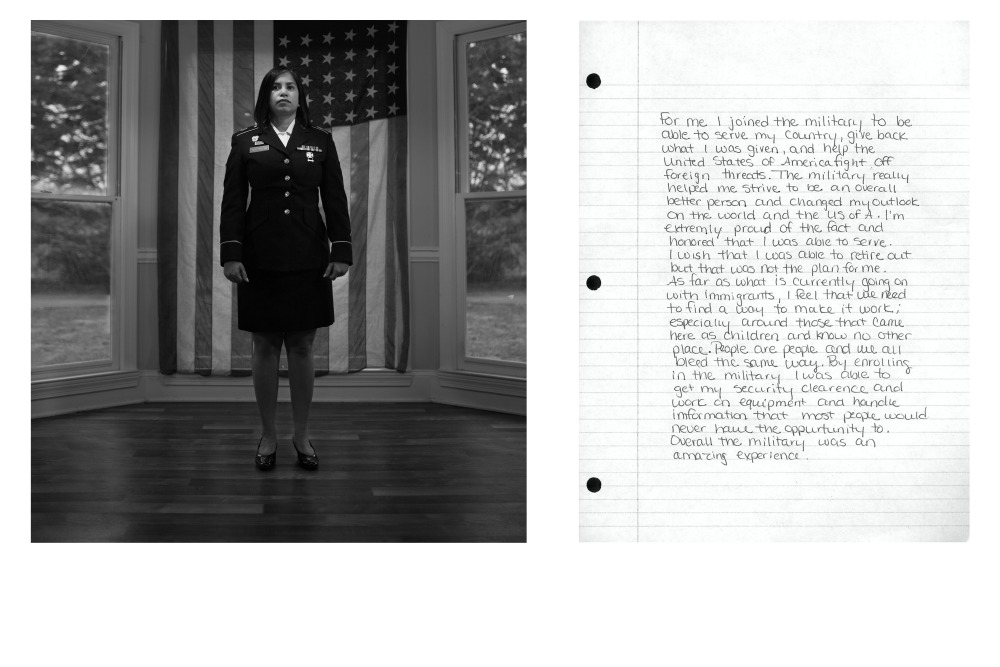 For me I joined the military to be
able to serve my country, give back
what I was given, and help the
United States of America fight off
foreign threats. The military really
helped me strive to be an overall
better person and changed my outlook
on the world and the US of A. I'm
extremly proud of the fact and
honored that I was able to serve.
I wish that I was able to retire out
but that was not the plan for me.
As far as what is currently going on
with immigrants, I feel that we need
to find a way to make it work;
especially around those that came
here as children and know no other
place. People are people and we all
bleed the same way. By enrolling
in the military I was able to
get my security clearence and
work on equipment and handle
information that most people would
never have the oppurtunity to.
Overall the military was an
amazing experience.